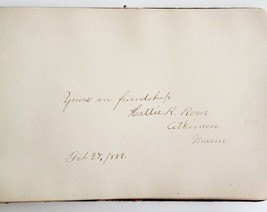 Yours in friendship
Hattie R. Rowe
Atkinson
Maine
Feb 27, 1888.